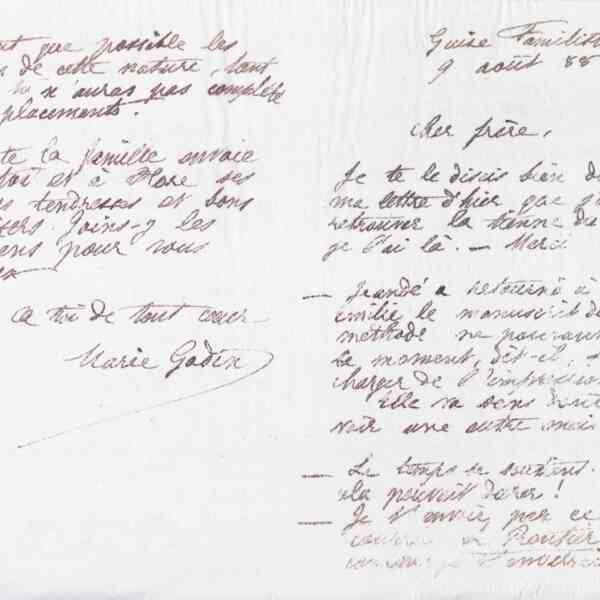 que possible les
de cette nature, tant
tu n'auras pas complété
placements.
la famille envoie
toi et à Flore ses
tendresses et bons
Joins-y les
pour vous
à toi de tout coeur
Marie Godin
Guise Familist
9 août 88
Cher frère,
Je te le disais bien d
ma lettre d'hier que j'
retrouver la tienne du
je l'ai là. — Merci
— a retourné à
Emilie le manuscrit d
méthode ne pouvant
le moment, dit-il,
charger de l'impression
Elle va sans doute
voir une autre mais
— Le temps se soutient.
cela pouvait durer !
— Je t'envoie, par ce